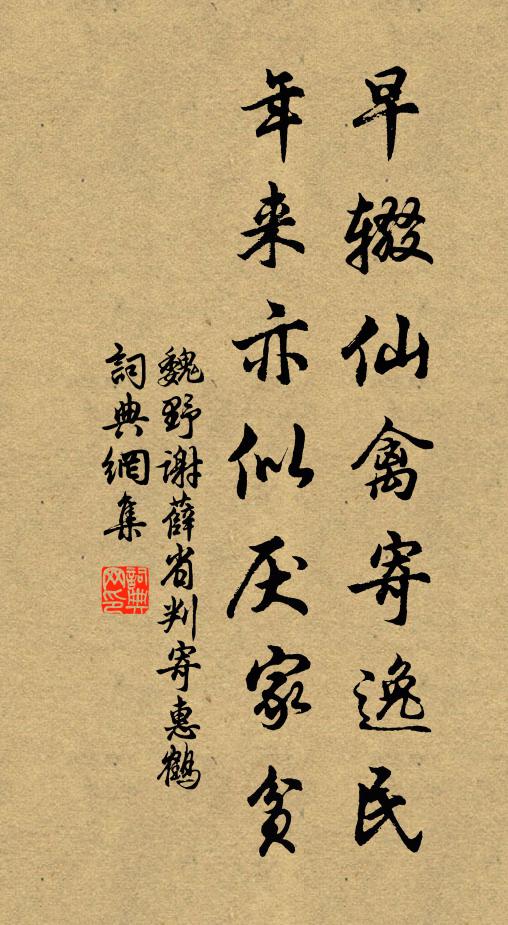 早辍仙禽寄逸民
年来亦似厌家贫
魏野谢薛省判寄惠鶴
詞典網集
詞典網印